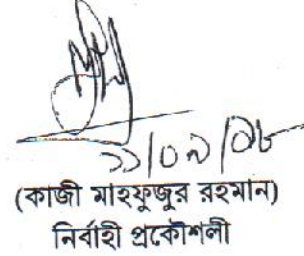 ১১/০৯/১৮
(কাজী মাহফুজুর রহমান)
নির্বাহী প্রকৌশলী